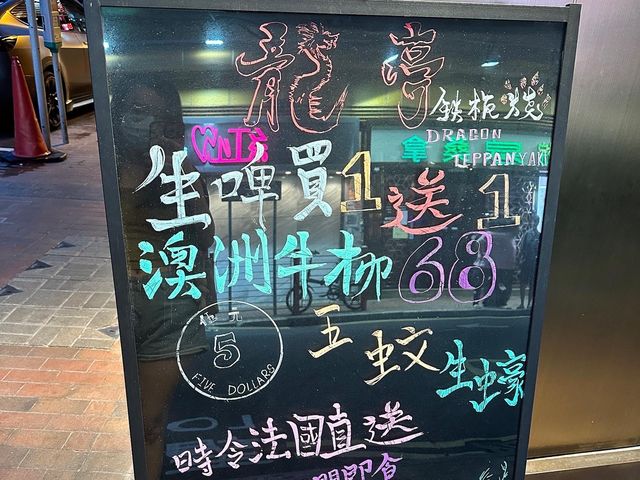 龍宮
鉄板焼
DRAGON
TEPPANYAKI
生啤買1送1
澳洲牛柳68
5
FIVE DOLLARS
五蚊生蠔
時令法國直送
即食